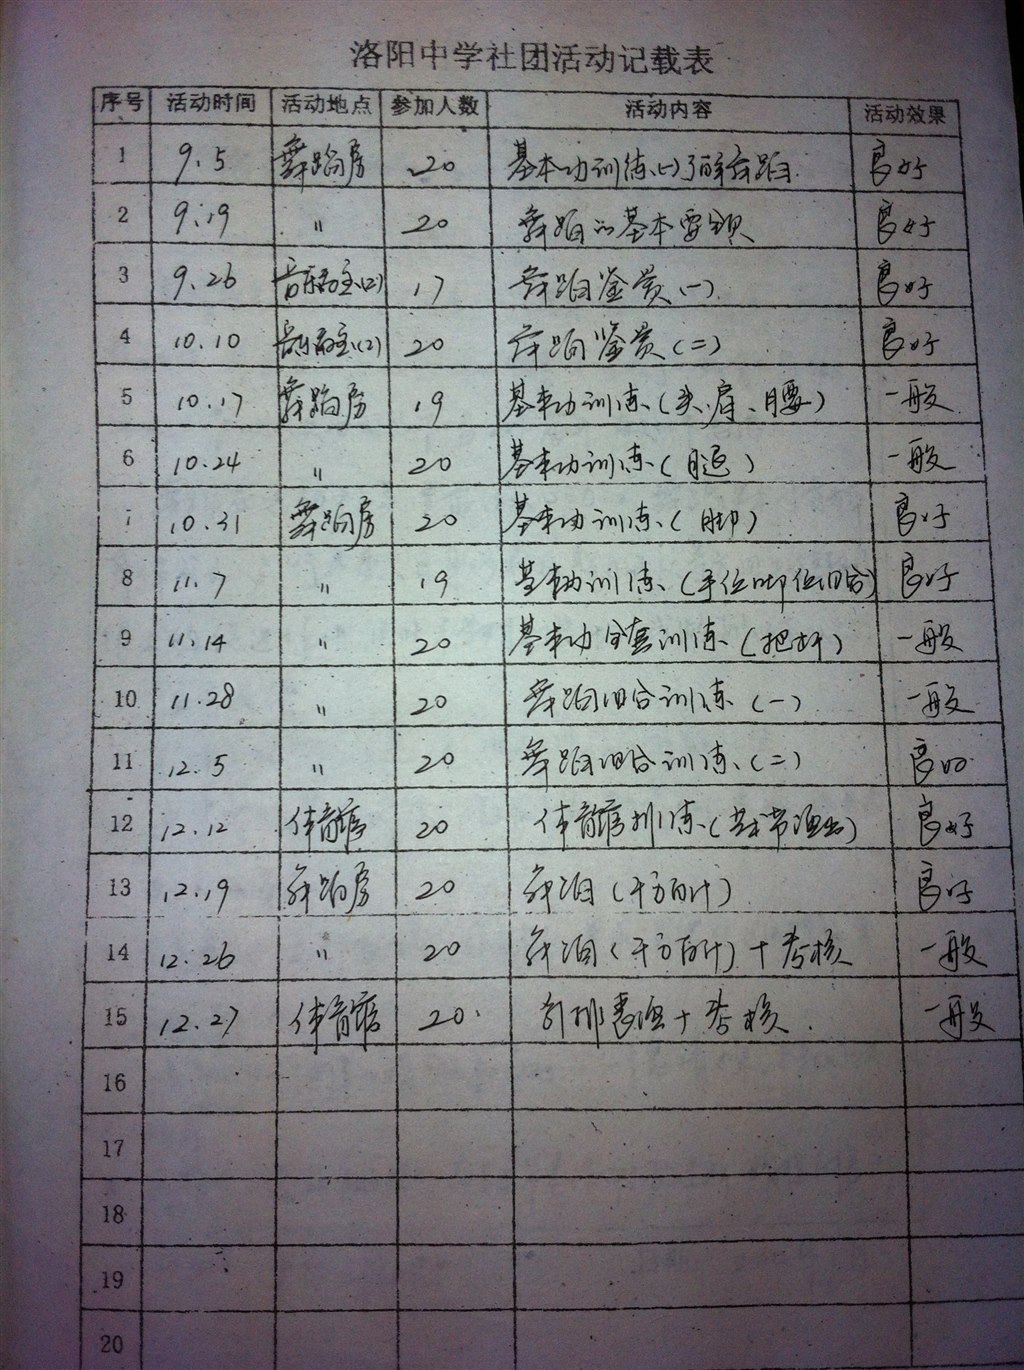 洛阳中学社团活动记载表
序号 活动时间 活动地点 参加人数 活动内容 活动效果
1 9.5 舞蹈房 20 基本功训练(一)了解舞蹈 良好
2 9.19 〃 20 舞蹈的基本要领 良好
3 9.26 音乐教室(2) 17 舞蹈鉴赏(一) 良好
4 10.10 音乐教室(2) 20 舞蹈鉴赏(二) 良好
5 10.17 舞蹈房 19 基本功训练(头、肩、腰) 一般
6 10.24 〃 20 基本功训练(腿) 一般
7 10.31 舞蹈房 20 基本功训练(脚) 良好
8 11.7 〃 19 基本功训练(手位脚位组合) 良好
9 11.14 〃 20 基本功全套训练(把杆) 一般
10 11.28 〃 20 舞蹈组合训练(一) 一般
11 12.5 〃 20 舞蹈组合训练(二) 良好
12 12.12 体育馆 20 体育馆排练(艺术节演出) 良好
13 12.19 舞蹈房 20 舞蹈(千方百计) 良好
14 12.26 〃 20 舞蹈(千方百计)+考核 一般
15 12.27 体育馆 20. 彩排表演+考核. 一般
16
17
18
19
20